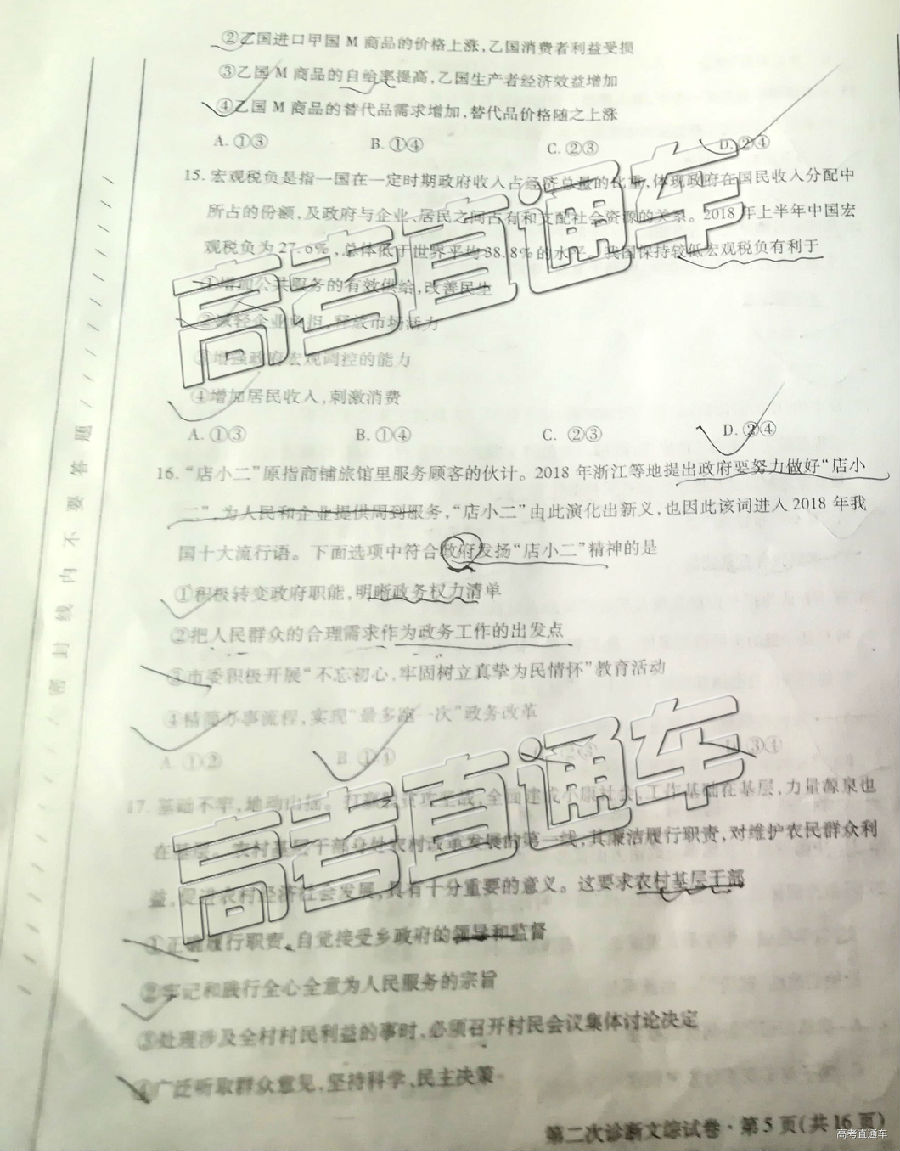 ②乙国进口甲国 M 商品的价格上涨,乙国消费者利益受损
③乙国 M 商品的自给率提高,乙国生产者经济效益增加
④乙国 M 商品的替代品需求增加,替代品价格随之上涨
A. ①③ B. ①④ C. ②③ D. ②④
15. 宏观税负是指一国在一定时期政府收入占经济总量的比重,体现政府在国民收入分配中
所占的份额,及政府与企业、居民之间占有和支配社会资源的关系。2018 年上半年中国宏
观税负为 27. %,总体低于世界平均 38.8% 的水平。我国保持较低宏观税负有利于
①增加公共服务的有效供给,改善民生
②减轻企业负担,释放市场活力
③增强政府宏观调控的能力
④增加居民收入,刺激消费
A. ①③ B. ①④ C. ②③ D. ②④
16. “店小二”原指商铺旅馆里服务顾客的伙计。2018 年浙江等地提出政府要努力做好“店小
二”,为人民和企业提供周到服务,“店小二”由此演化出新义,也因此该词进入 2018 年我
国十大流行语。下面选项中符合政府发扬“店小二”精神的是
①积极转变政府职能,明晰政务权力清单
②把人民群众的合理需求作为政务工作的出发点
③市委积极开展“不忘初心,牢固树立真挚为民情怀”教育活动
④精简办事流程,实现“最多跑一次”政务改革
A. ①② B. ①④ ②③ D. ③④
17. 基础不牢,地动山摇。打赢脱贫攻坚战,全面建成小康社会,工作基础在基层,力量源泉也
在基层。农村基层干部身处农村改革发展的第一线,其廉洁履行职责,对维护农民群众利
益,促进农村经济社会发展,具有十分重要的意义。这要求农村基层干部
①正确履行职责,自觉接受乡政府的领导和监督
②牢记和践行全心全意为人民服务的宗旨
③处理涉及全村村民利益的事时,必须召开村民会议集体讨论决定
④广泛听取群众意见,坚持科学、民主决策
第二次诊断文综试卷·第 5 页(共 16 页)
密 封 线 内 不 要 答 题
高考直通车
高考直通车
高考直通车